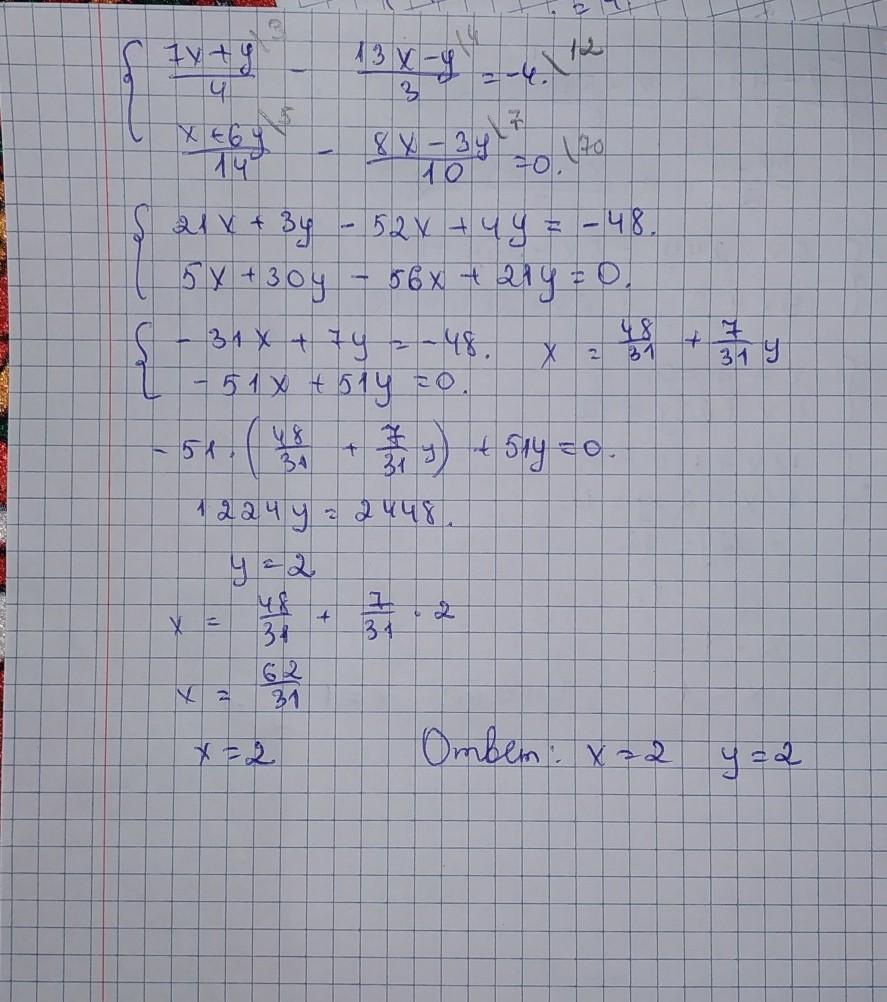 { (7x+y)/4 \3 - (13x-y)/3 \4 = -4. \12
(x+6y)/14 \5 - (8x-3y)/10 \7 = 0. \70
{ 21x + 3y - 52x + 4y = -48.
5x + 30y - 56x + 21y = 0.
{ - 31x + 7y = -48. x = 48/31 + 7/31 y
- 51x + 51y = 0.
- 51 · (48/31 + 7/31 y) + 51y = 0.
1224y = 2448.
y = 2
x = 48/31 + 7/31 · 2
x = 62/31
x = 2 Ответ: x = 2 y = 2